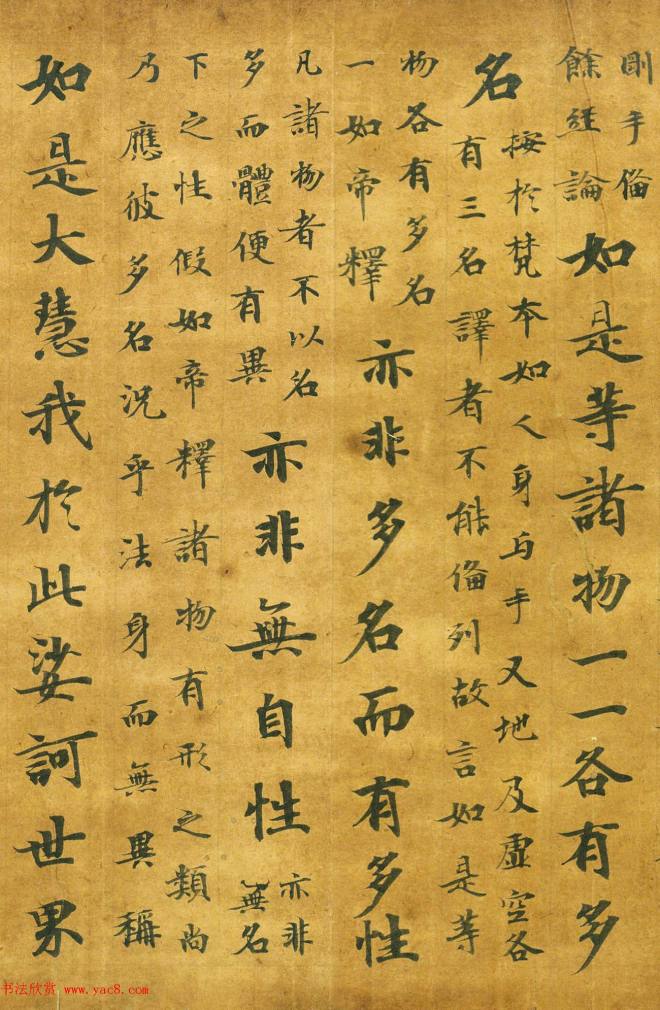 剛手備餘經論如是等諸物一一各有多
名按於梵本如人身与手又地及虛空各有三名譯者不能備列故言如是等
物各有多名一如帝釋亦非多名而有多性
凡諸物者不以名多而體便有異亦非無自性亦非無名
下之性假如帝釋諸物有形之類尚乃應彼多名況乎法身而無異稱
如是大慧我於此娑訶世界
书法欣赏 www.yac8.com